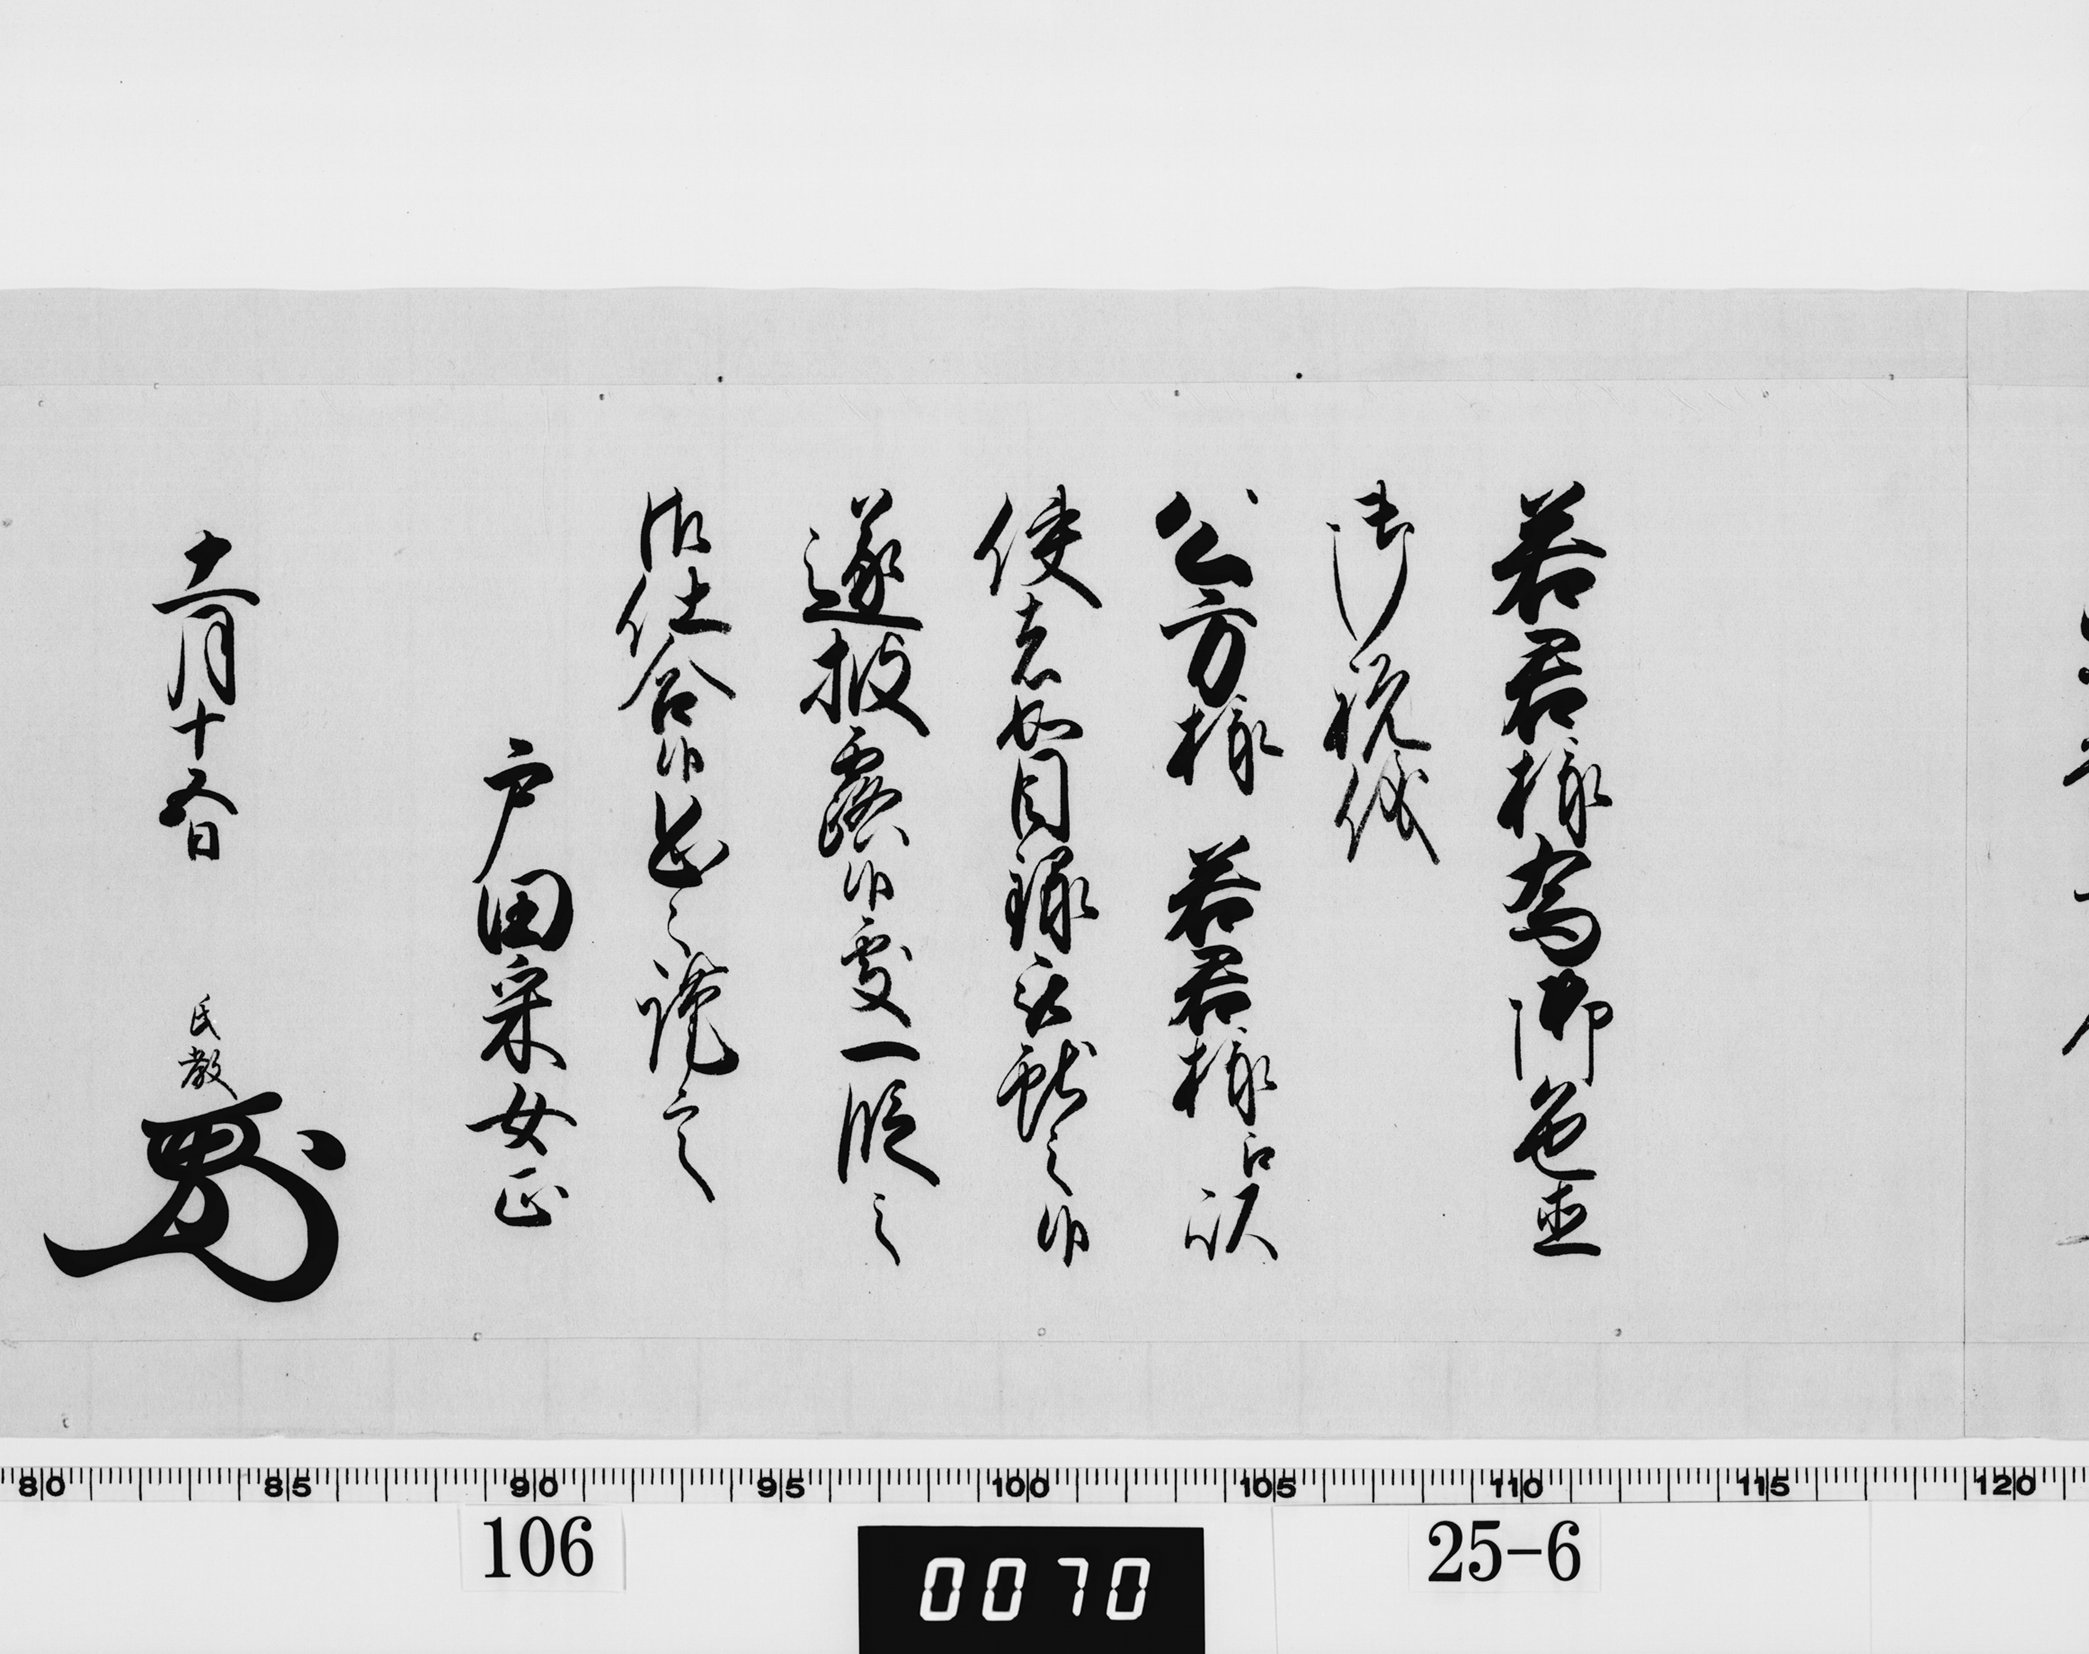 若君様為御色直
御祝儀
公方様 若君様江以
使者如目録被献之候
遂披露候処一段之
御仕合候恐々謹言
戸田采女正
十一月十五日
氏教
80 85 90 95 100 105 110 115 120
106
0070
25-6